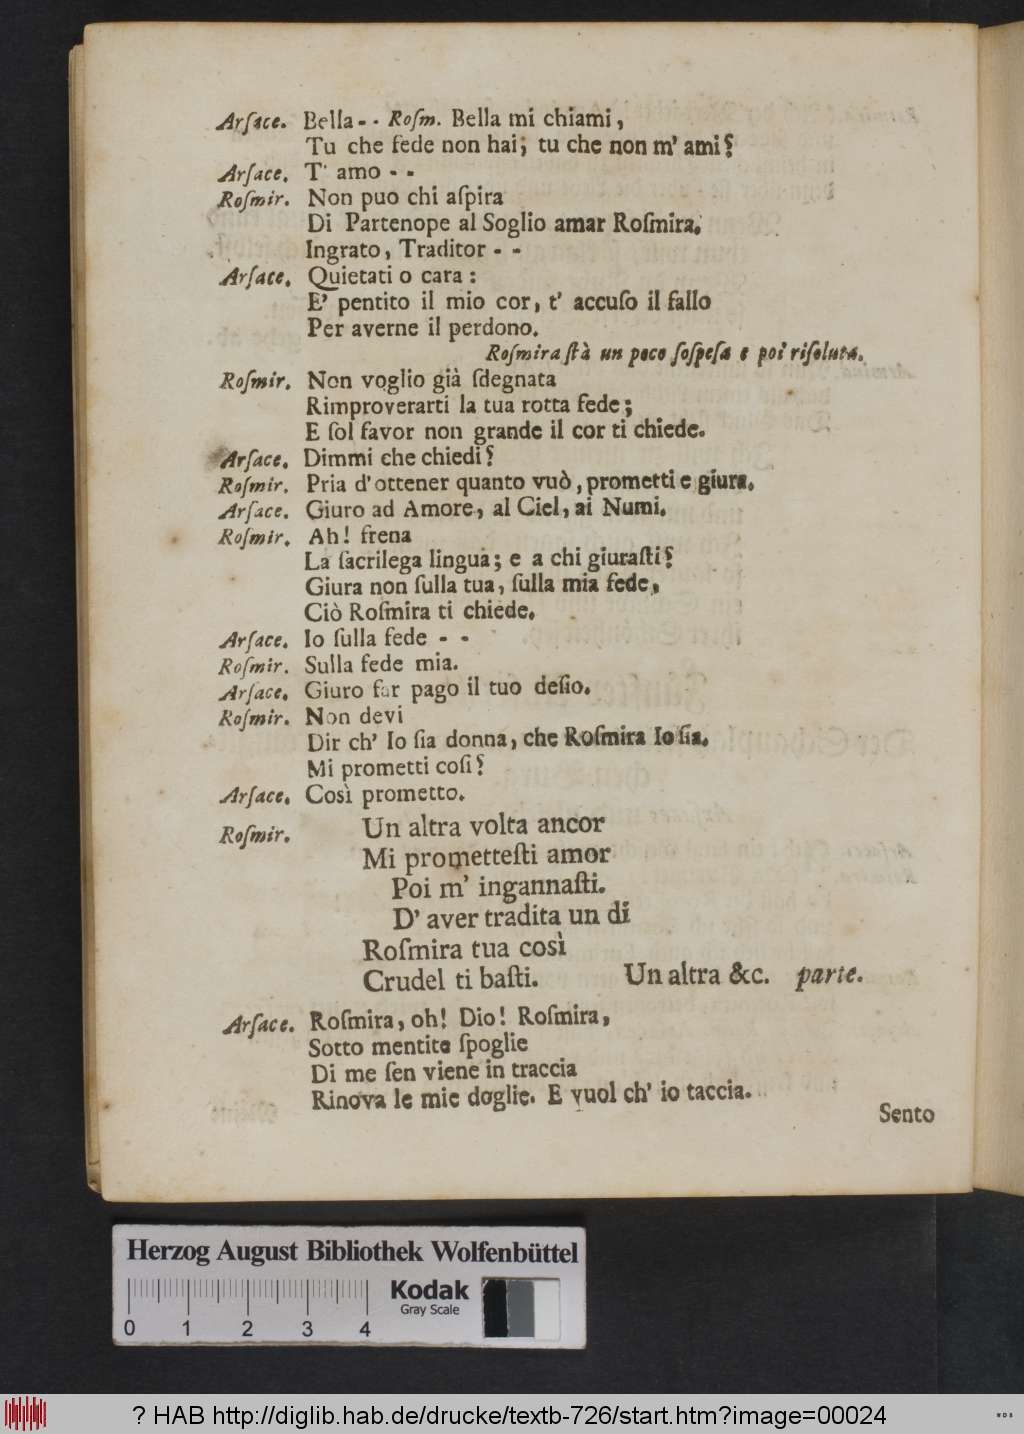 Arſace. Bella - - Roſm. Bella mi chiami,
Tu che fede non hai; tu che non m' ami?
Arſace. T' amo - -
Roſmir. Non puo chi aſpira
Di Partenope al Soglio amar Roſmira.
Ingrato, Traditor - -
Arſace. Quietati o cara:
E' pentito il mio cor, t' accuſo il fallo
Per averne il perdono.
Roſmira ſtà un poco ſoſpeſa e poi riſoluta.
Roſmir. Non voglio già ſdegnata
Rimproverarti la tua rotta fede;
E ſol favor non grande il cor ti chiede.
Arſace. Dimmi che chiedi?
Roſmir. Pria d' ottener quanto vuò, prometti e giura.
Arſace. Giuro ad Amore, al Ciel, ai Numi.
Roſmir. Ah! frena
La ſacrilega lingua; e a chi giuraſti?
Giura non ſulla tua, ſulla mia fede,
Ciò Roſmira ti chiede.
Arſace. Io ſulla fede - -
Roſmir. Sulla fede mia.
Arſace. Giuro far pago il tuo deſio.
Roſmir. Non devi
Dir ch' Io ſia donna, che Roſmira Io ſia.
Mi prometti coſi?
Arſace. Così prometto.
Roſmir. Un altra volta ancor
Mi prometteſti amor
Poi m' ingannaſti.
D' aver tradita un dì
Roſmira tua così
Crudel ti baſti. Un altra &c. parte.
Arſace. Roſmira, oh! Dio! Roſmira,
Sotto mentite ſpoglie
Di me ſen viene in traccia
Rinova le mie doglie. E vuol ch' io taccia.
Sento
Herzog August Bibliothek Wolfenbüttel
Kodak
Gray Scale
0 1 2 3 4
? HAB http://diglib.hab.de/drucke/textb-726/start.htm?image=00024